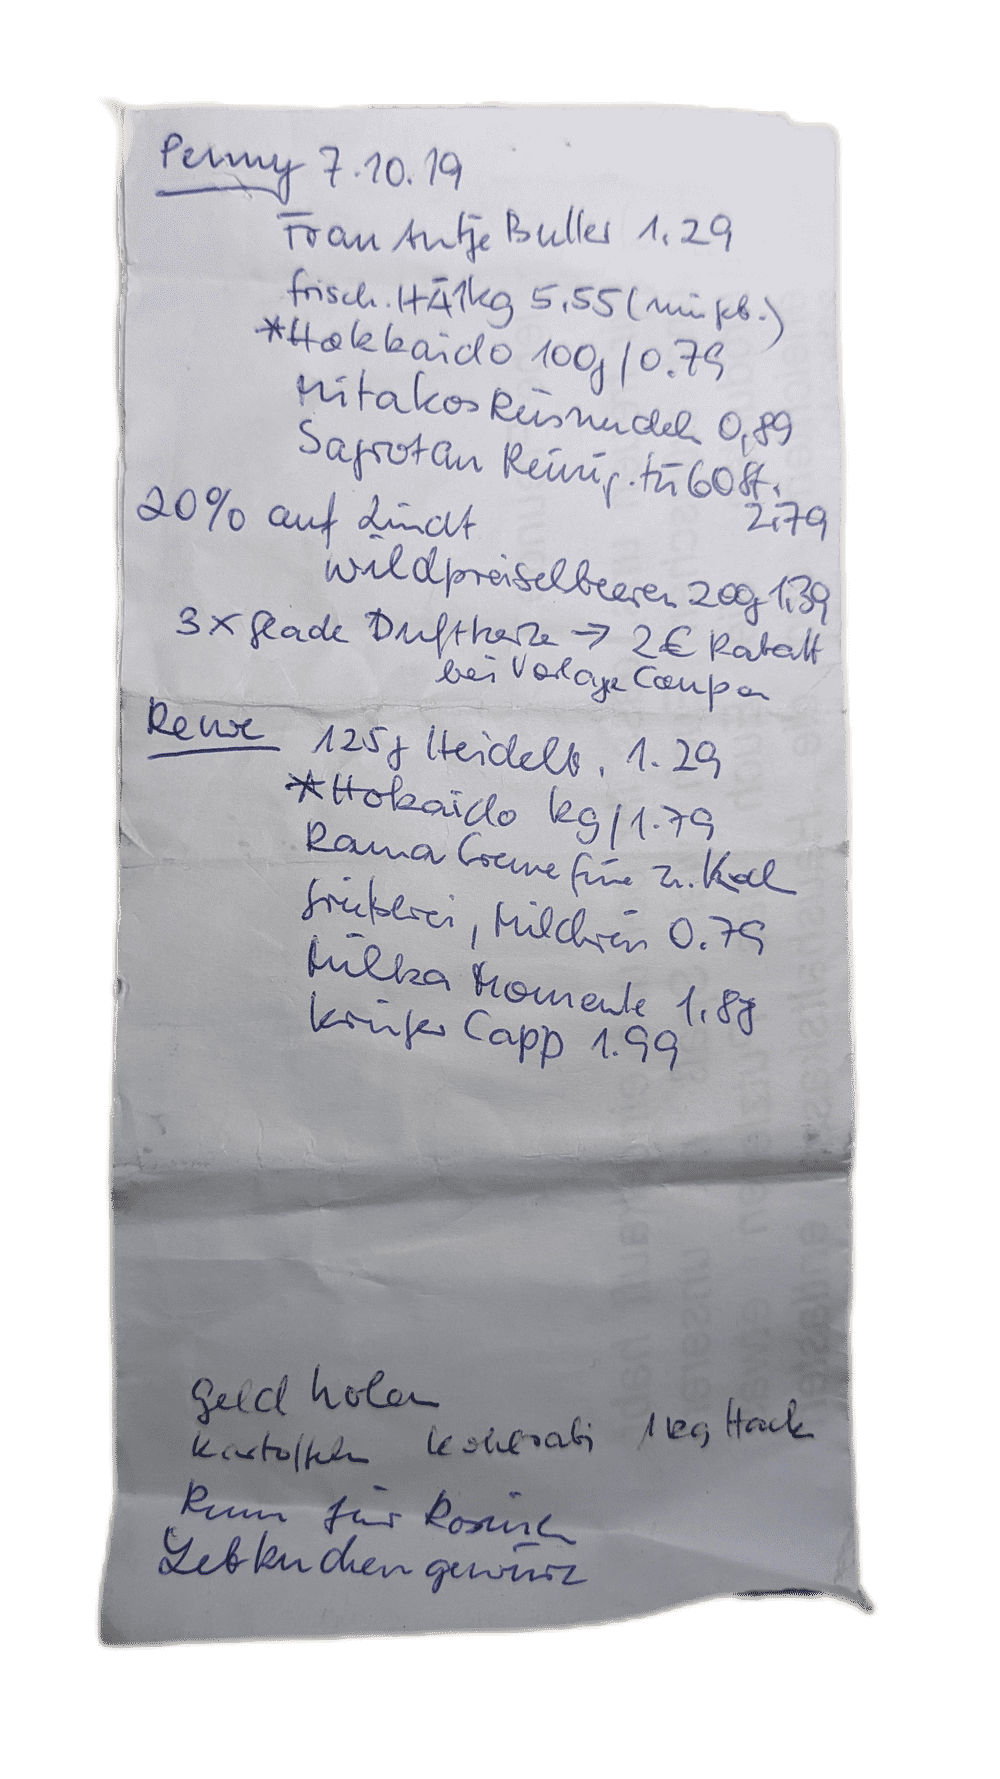 Penny 7.10.19
Frau Antje Butter 1.29
frisch. HÄ1kg 5,55 (mi gb.)
*Hokkaido 100g/0.79
Mitakos Reisnudeln 0,89
Sagrotan Reinig. tü 60 St.
2.79
20% auf Lindt
Wildpreiselbeeren 200g 1,39
3x Glade Duftkerze → 2€ Rabatt
bei Vorlage Coupon
Rewe 125g Heidelb. 1.29
*Hokaido kg/1.79
Rama Creme fine z. Koch
Grießbrei, Milchreis 0.79
Milka Momente 1,89
Krüger Capp 1.99
Geld holen
Kartoffeln Kohlrabi 1kg Hack
Rum für Rosinen
Lebkuchengewürz